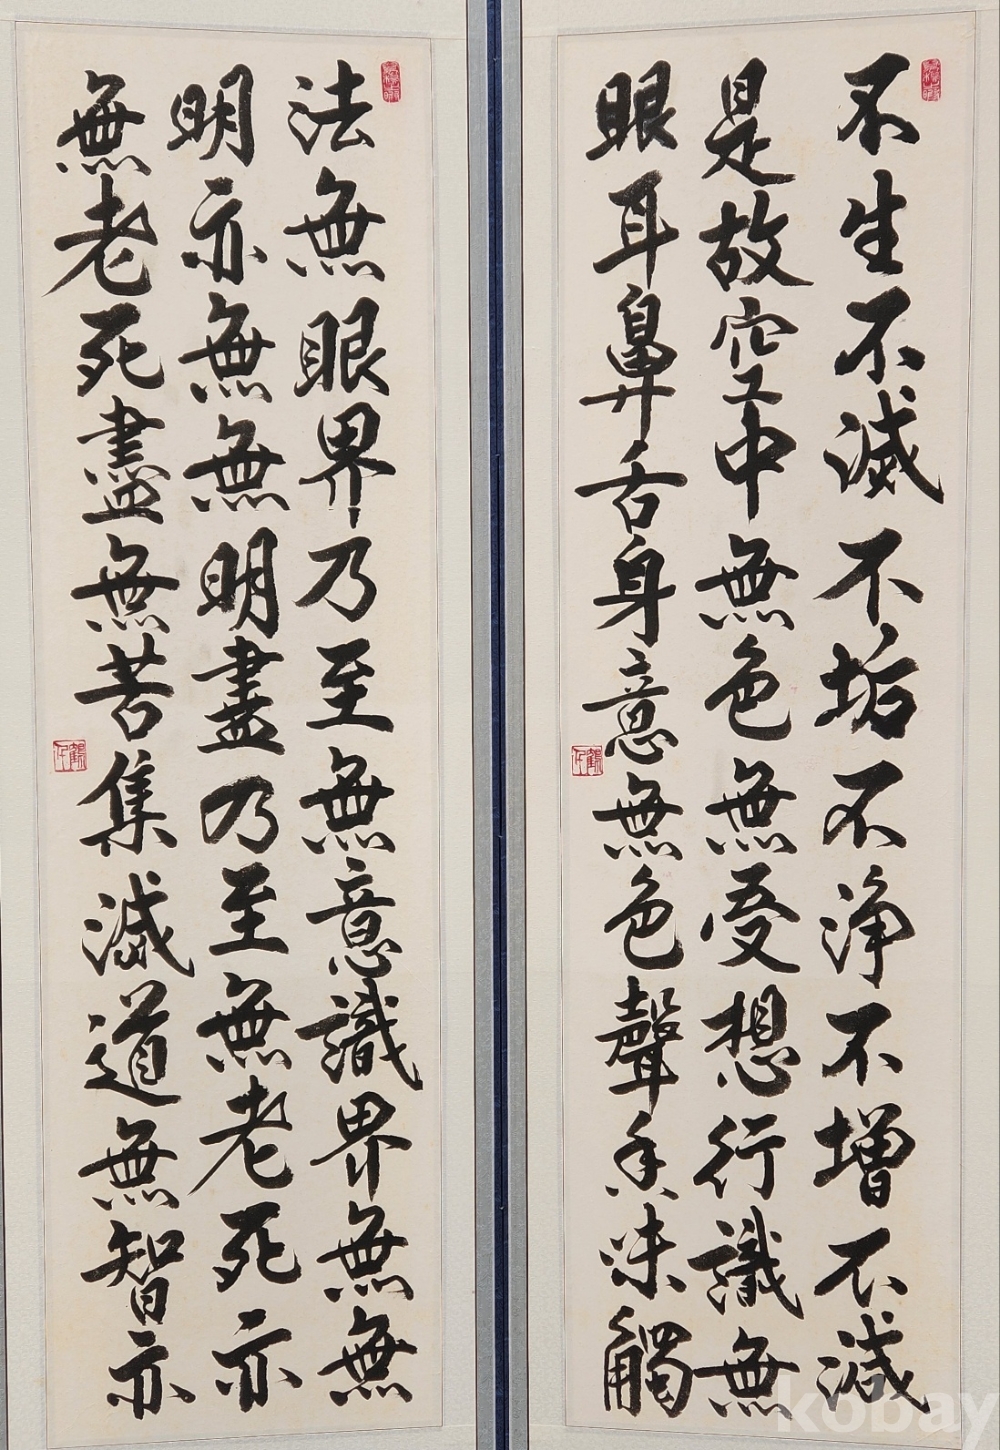 不生不滅不垢不淨不增不減
是故空中無色無受想行識無
眼耳鼻舌身意無色聲香味觸
法無眼界乃至無意識界無無
明亦無無明盡乃至無老死亦
無老死盡無苦集滅道無智亦
kobay